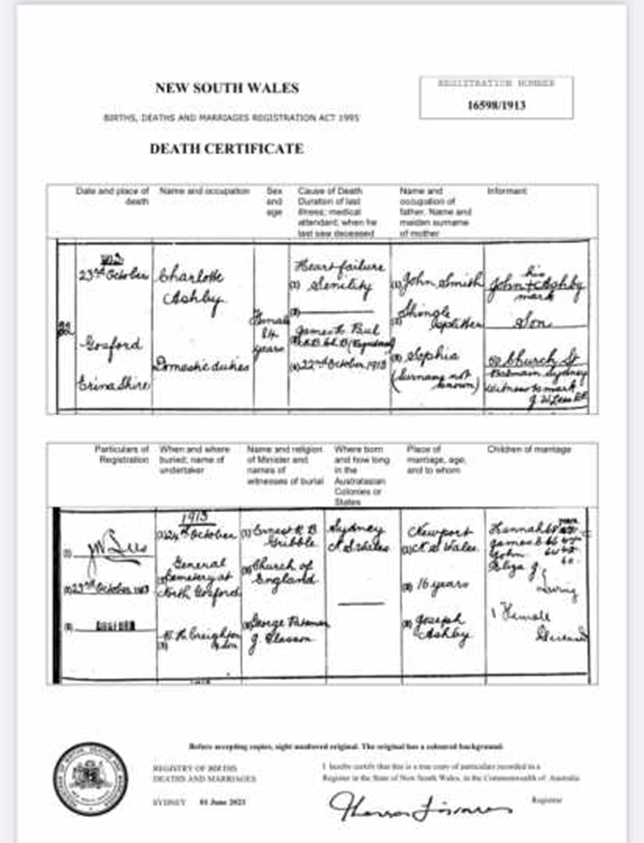 REGISTRATION NUMBER
NEW SOUTH WALES
16598/1913
BIRTHS, DEATHS AND MARRIAGES REGISTRATION ACT 1995
DEATH CERTIFICATE
Date and place of death
Name and occupation
Sex and age
Cause of Death
Duration of last
illness; medical
attendant; when he
last saw deceased
Name and
occupation of
father. Name and
maiden surname
of mother
Informant
1913
23rd October
Gosford
Erina Shire
Charlotte
Ashby
Domestic duties
Female
84
years
Heart failure
(1) Senility
(2)
James H. Paul
(4) 22nd October 1913
(1) John Smith
Shingle
Splitter
(3) Sophia
(Surname not
known)
his
John + Ashby
mark
Son
Church St
Balmain Sydney
Witness to mark
Particulars of
Registration
When and where
buried; name of
undertaker
Name and religion
of Minister and
names of
witnesses of burial
Where born
and how long
in the
Australasian
Colonies or
States
Place of
marriage, age,
and to whom
Children of marriage
(1)
(2) 23rd October 1913
(3) GOSFORD
1913
(1) 24th October
General
(2) Cemetery at
North Gosford
(3)
(1) Ernest R B
Gribble
(2) Church of
England
(3) George Pateman
J. Glasson
Sydney
N. S. Wales
Newport
(1) N. S. Wales
(2) 16 years
(3) Joseph
Ashby
years
Hannah
James
John
Eliza J
Living
1 Female
Deceased
Before accepting copies, sight unaltered original. The original has a coloured background.
REGISTRY OF BIRTHS
DEATHS AND MARRIAGES
I hereby certify that this is a true copy of particulars recorded in a
Register in the State of New South Wales, in the Commonwealth of Australia
SYDNEY 01 June 2021
Registrar